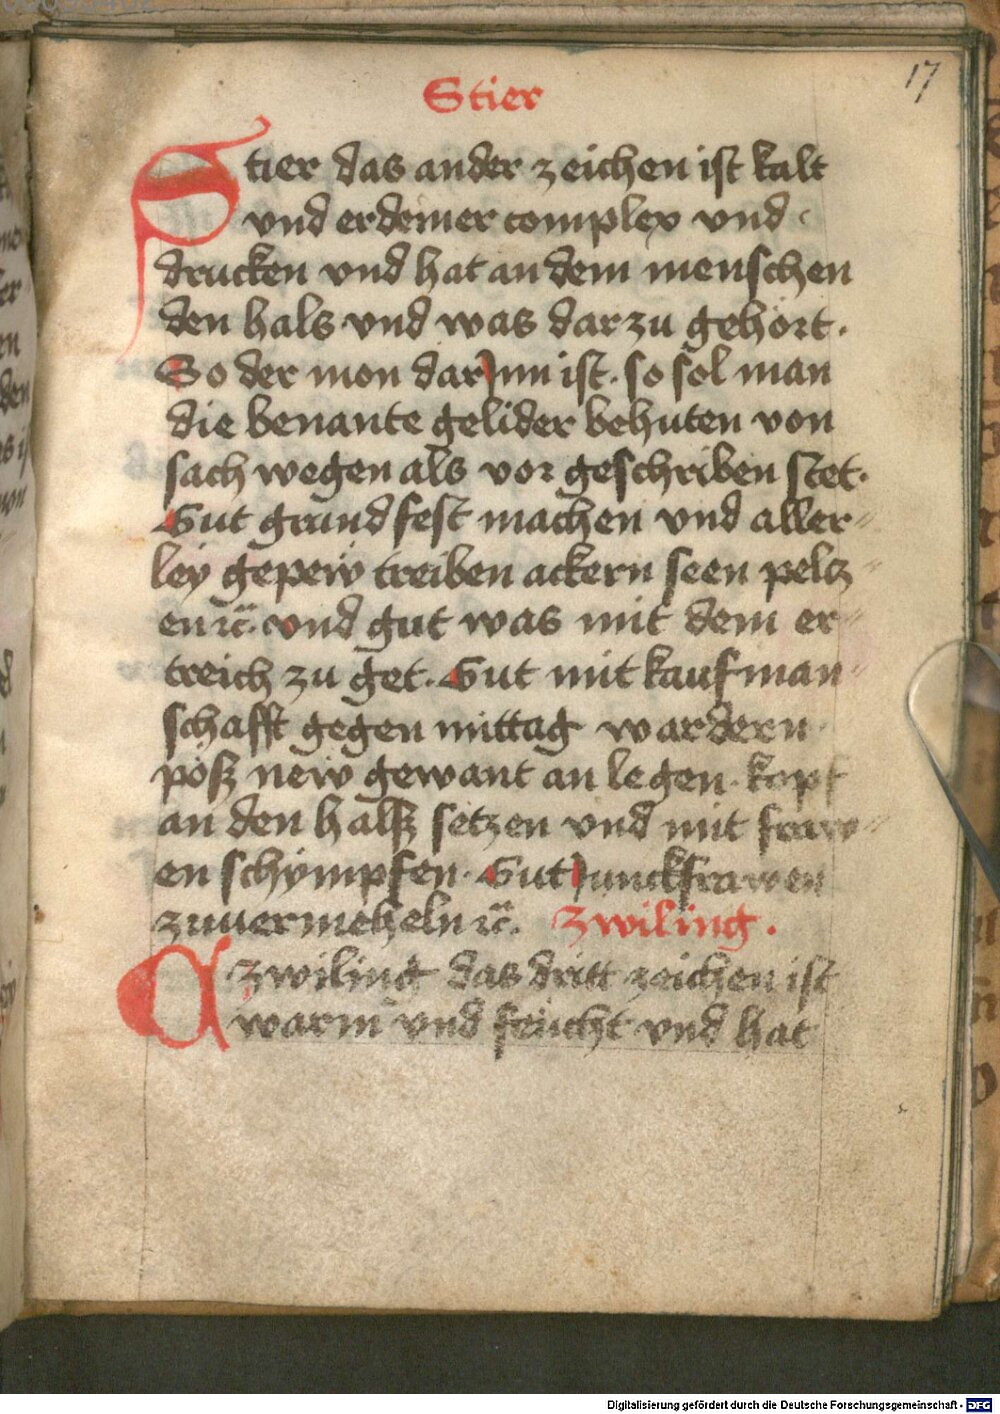 17
Stier
Stier das ander zeichen ist kalt
vnd erdeiner complex vnd
drucken vnd hat an dem menschen
den hals vnd was dar zu gehort.
So der mon dar Jnn ist. so sol man
die benante gelider behuten von
sach wegen als vor geschriben stet.
Gut grundfest machen vnd aller=
ley gepew treiben ackern seen peltz=
en ꝛc. vnd gut was mit dem er=
treich zu get. Gut mit kaufman=
schafft gegen mittag wardern
pöß new gewant an legen. kopf
an den halß setzen vnd mit fraw=
en schympfen. Gut Junckfrawen
zuuermeheln ꝛc. Zwiling.
zwiling das dritt zeichen ist
warm vnd feucht vnd hat
Digitalisierung gefördert durch die Deutsche Forschungsgemeinschaft - DFG